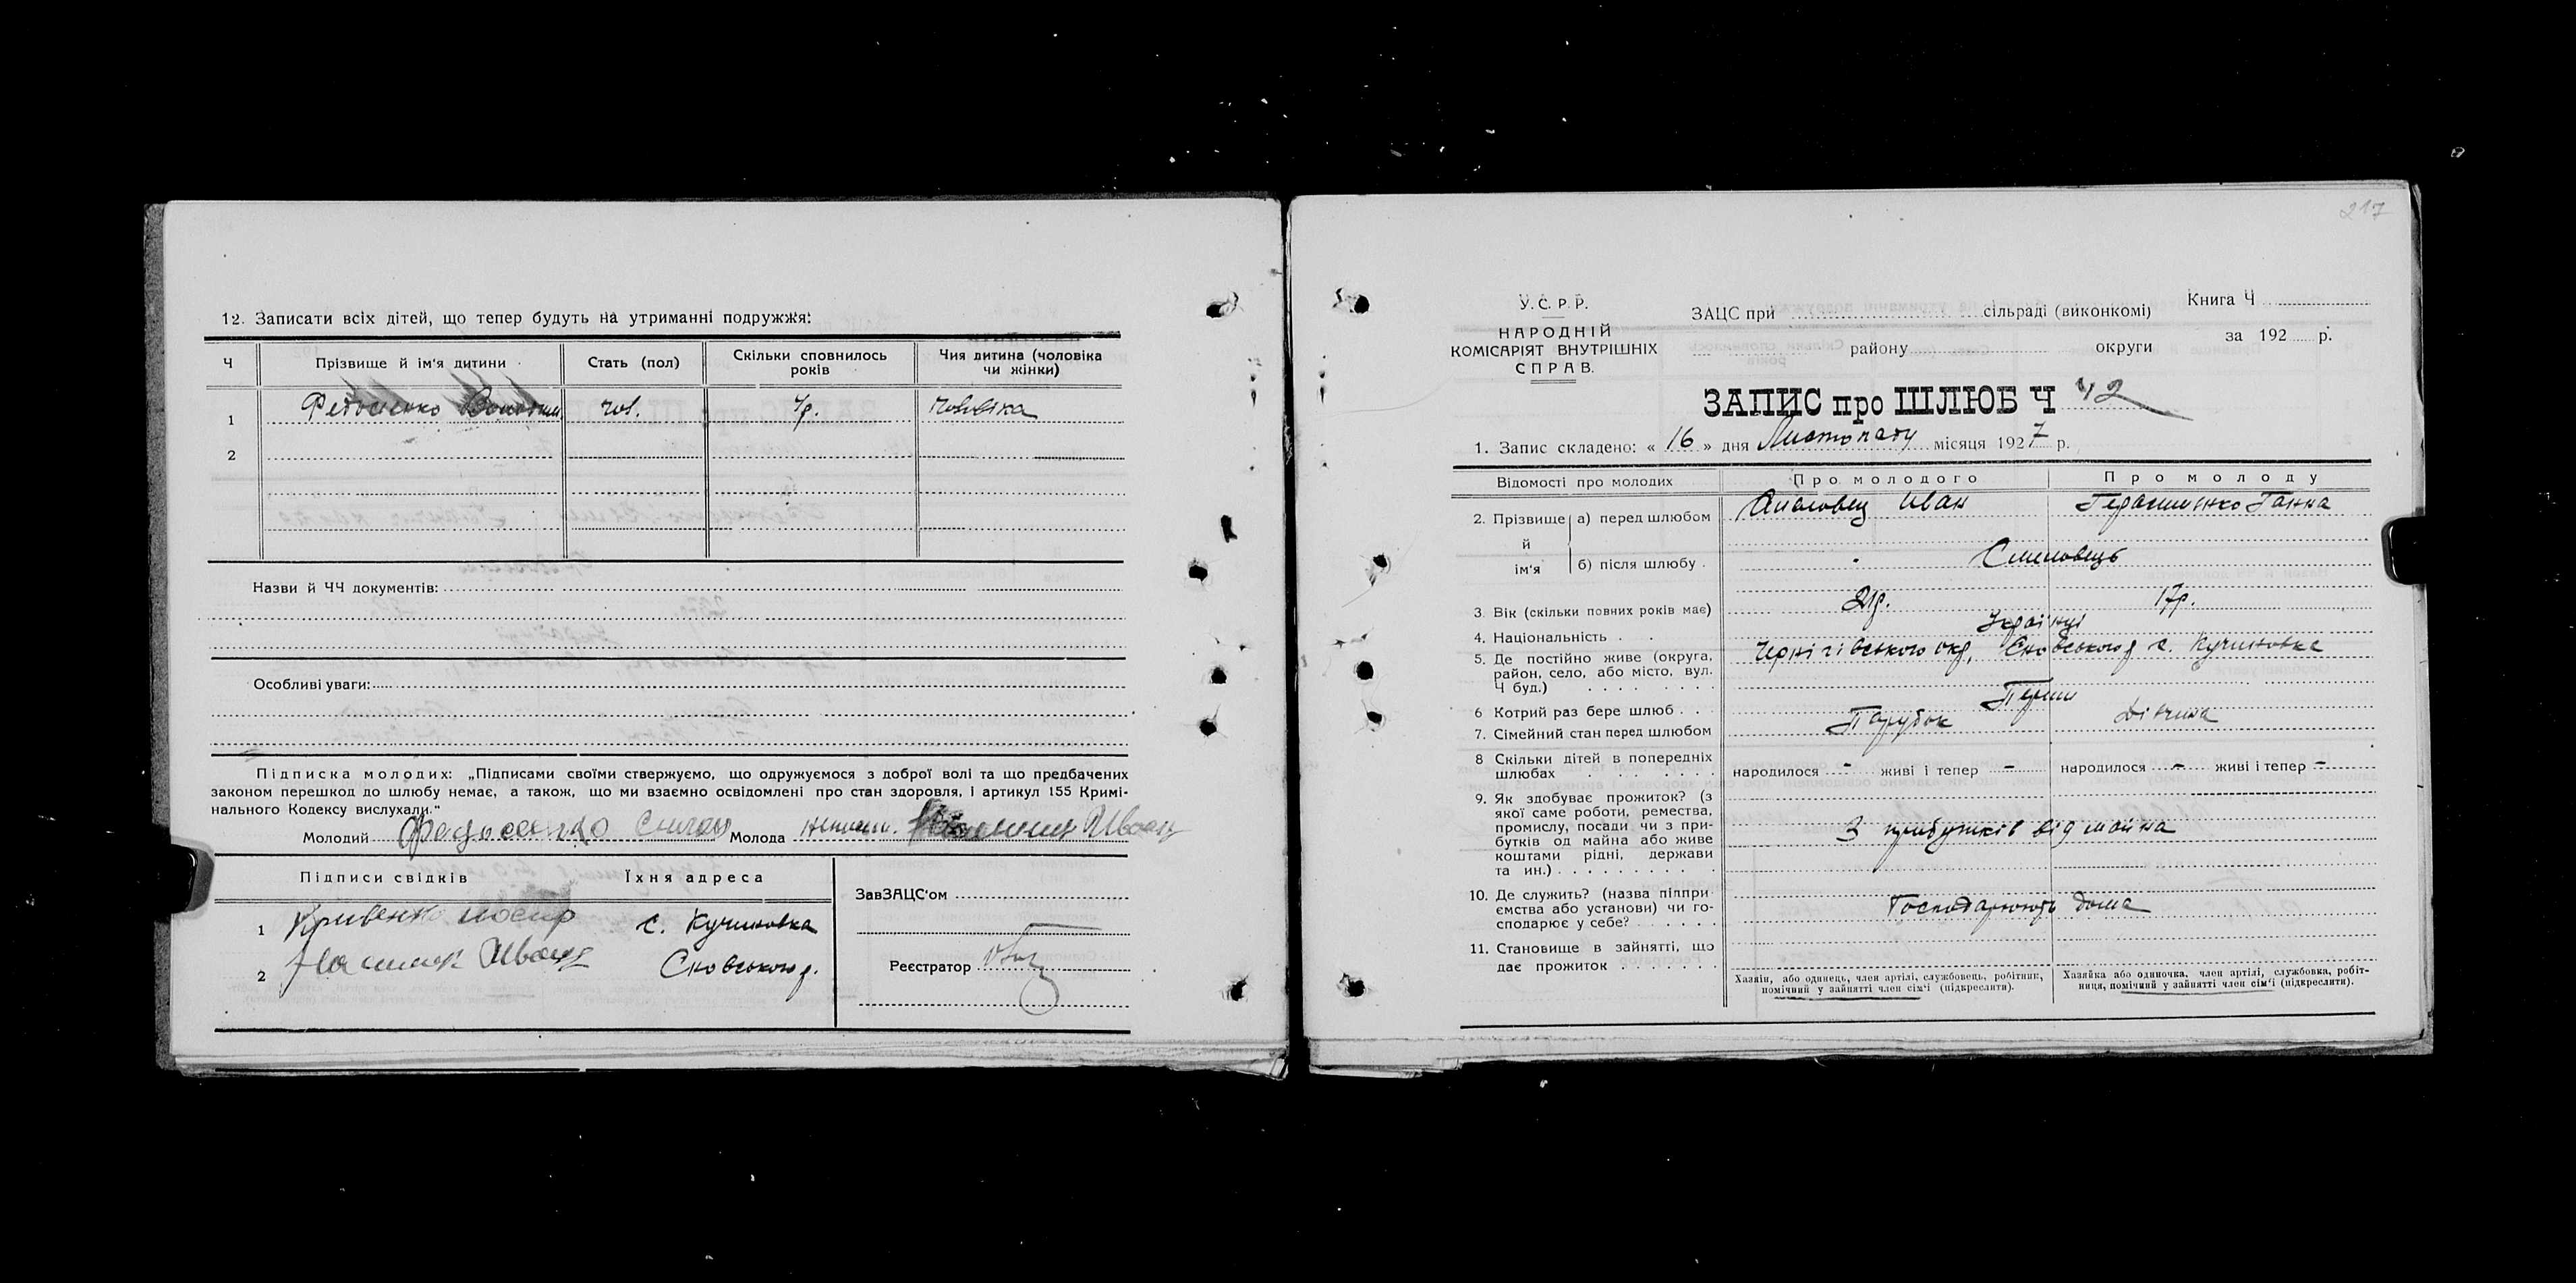 12. Записати всіх дітей, що тепер будуть на утриманні подружжя:
Ч Прізвище й ім'я дитини Стать (пол) Скільки сповнилось років Чия дитина (чоловіка чи жінки)
1 Федосенко чол. чоловіка
2
Назви й ЧЧ документів:
Особливі уваги:
Підписка молодих: „Підписами своїми стверджуємо, що одружуємося з доброї волі та що предбачених
законом перешкод до шлюбу немає, а також, що ми взаємно освідомлені про стан здоровля, і артикул 155 Кримі-
нального Кодексу вислухали."
Молодий Молода Иван
Підписи свідків Їхня адреса
1 Кривенко с. Кучиновка
2 Иван Сновського р.
ЗавЗАЦС'ом
Реєстратор
217
У.С.Р.Р.
НАРОДНІЙ
КОМІСАРІЯТ ВНУТРІШНІХ
СПРАВ.
ЗАЦС при сільраді (виконкомі)
району округи
Книга Ч
за 192 р.
ЗАПИС про ШЛЮБ Ч 42
1. Запис складено: « 16 » дня Листопаду місяця 1927 р.
Відомості про молодих Про молодого Про молоду
2. Прізвище й ім'я а) перед шлюбом Иван Герасименко Ганна
б) після шлюбу
3. Вік (скільки повних років має) 21р. 17р.
4. Національність Українці
5. Де постійно живе (округа, район, село, або місто, вул. Ч буд.) Чернігівського окр, Сновського р с. Кучиновка
6 Котрий раз бере шлюб Перши
7. Сімейний стан перед шлюбом Парубок Дівчина
8 Скільки дітей в попередніх шлюбах народилося - живі і тепер - народилося - живі і тепер -
9. Як здобуває прожиток? (з
якої саме роботи, ремества,
промислу, посади чи з при-
бутків од майна або живе
коштами рідні, держави
та ин.) З прибутків від майна
10. Де служить? (назва підпри-
ємства або установи) чи го-
сподарює у себе? Господарюють дома
11. Становище в зайнятті, що
дає прожиток
Хазяїн, або одинець, член артілі, службовець, робітник,
помічний у зайнятті член сім'ї (підкреслити).
Хазяйка або одиночка, член артілі, службовка, робіт-
ниця, помічний у зайнятті член сім'ї (підкреслити).